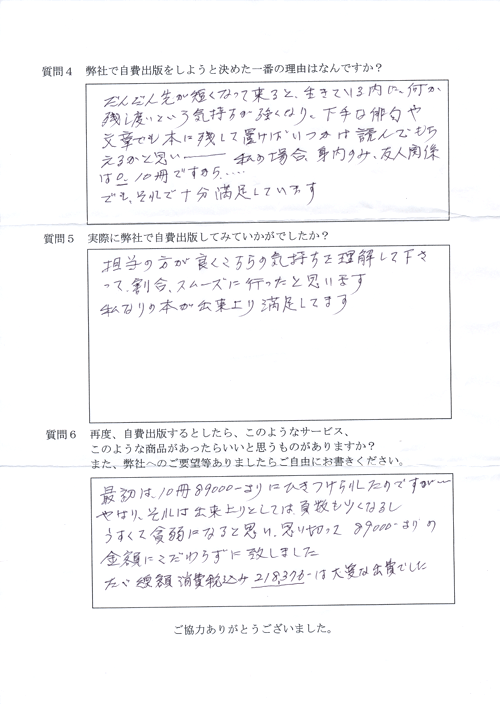 質問4 弊社で自費出版をしようと決めた一番の理由はなんですか?
だんだん先が短くなって来ると、生きている内に、何か
残し度いという気持ちが強くなり、下手な俳句や
文章でも本に残して置けばいつかは読んでもら
えるかと思い―― 私の場合、身内のみ、友人関係
は0. 10冊ですから、....
でも、それで十分満足しています
質問5 実際に弊社で自費出版してみていかがでしたか?
担当の方が良くこちらの気持ちを理解して下さ
って、割合、スムーズに行ったと思います
私なりの本が出来上り満足してます
質問6 再度、自費出版するとしたら、このようなサービス、
このような商品があったらいいと思うものがありますか?
また、弊社へのご要望等ありましたらご自由にお書きください。
最初は10冊89000-よりにひきつけられたのですが~
やはり、それは出来上りとしては頁数も少くなるし
うすくて貧弱になると思い、思い切って 89000-よりの
金額にこだわらずに致しました
たゞ総額 消費税込み 218,376-は大変な出費でした
ご協力ありがとうございました。